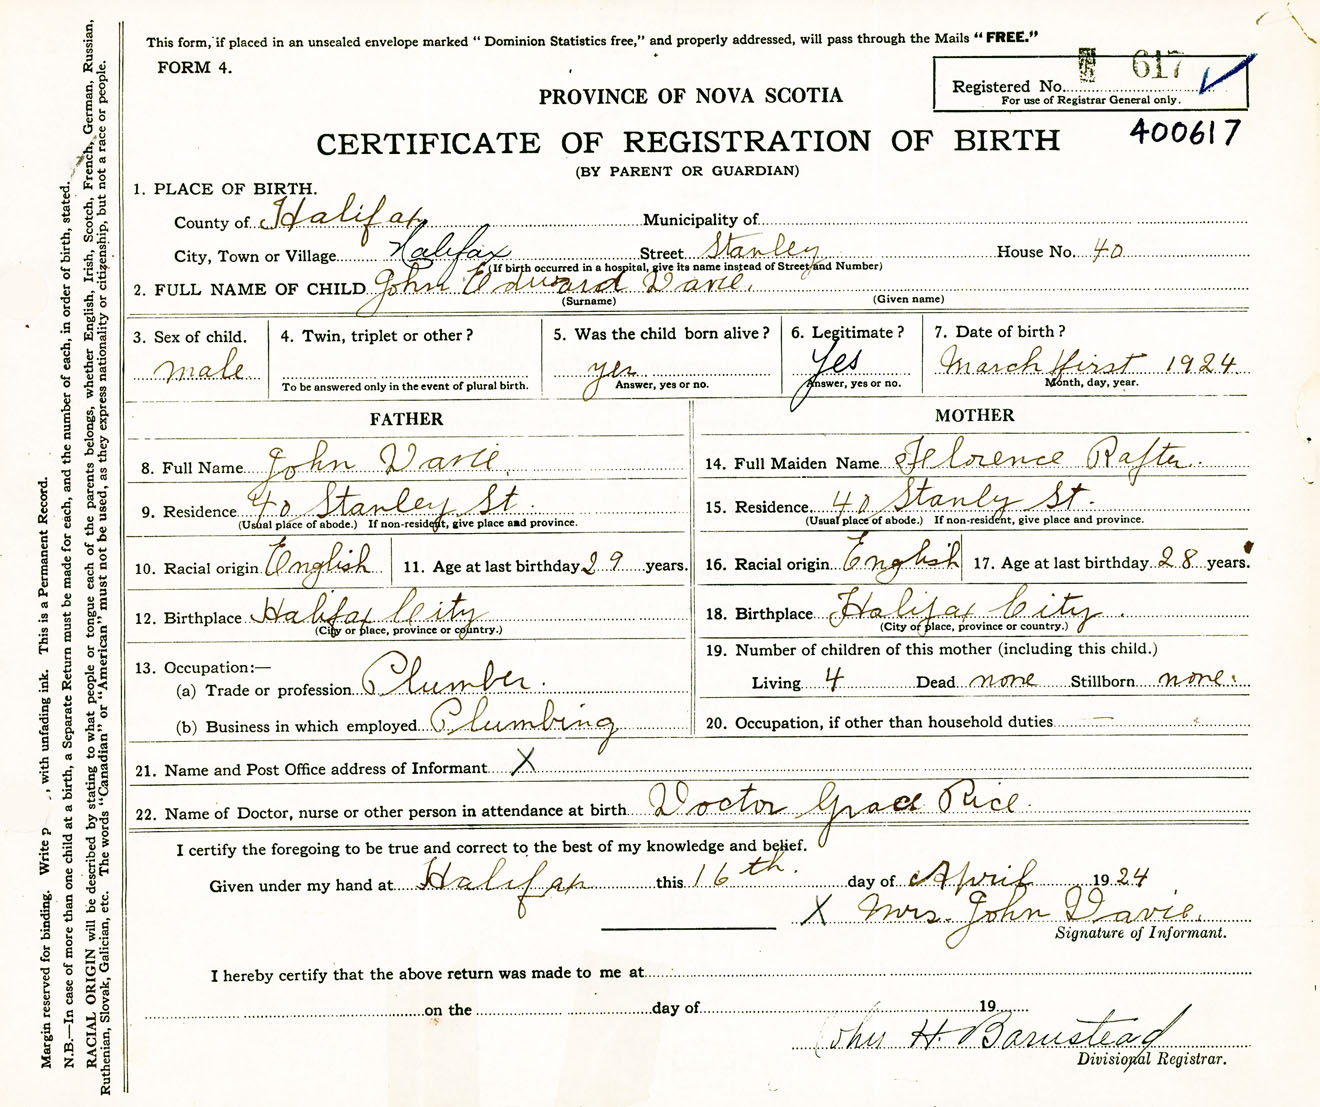 This form, if placed in an unsealed envelope marked " Dominion Statistics free," and properly addressed, will pass through the Mails " FREE."
FORM 4.
Registered No. 617
For use of Registrar General only.
400617
PROVINCE OF NOVA SCOTIA
CERTIFICATE OF REGISTRATION OF BIRTH
(BY PARENT OR GUARDIAN)
1. PLACE OF BIRTH.
County of Halifax Municipality of
City, Town or Village Halifax Street Stanley House No. 40
(If birth occurred in a hospital, give its name instead of Street and Number)
2. FULL NAME OF CHILD John Edward Davie.
(Surname) (Given name)
3. Sex of child. 4. Twin, triplet or other ? 5. Was the child born alive ? 6. Legitimate ? 7. Date of birth ?
male yes Yes March first 1924
To be answered only in the event of plural birth. Answer, yes or no. Answer, yes or no. Month, day, year.
FATHER
8. Full Name John Davie.
9. Residence 40 Stanley St.
(Usual place of abode.) If non-resident, give place and province.
10. Racial origin English 11. Age at last birthday 29 years.
12. Birthplace Halifax City
(City or place, province or country.)
13. Occupation:—
(a) Trade or profession Plumber.
(b) Business in which employed Plumbing
MOTHER
14. Full Maiden Name Florence Rafter.
15. Residence. 40 Stanly St.
(Usual place of abode.) If non-resident, give place and province.
16. Racial origin English 17. Age at last birthday 28 years.
18. Birthplace Halifax City.
(City or place, province or country.)
19. Number of children of this mother (including this child.)
Living 4 Dead none Stillborn none.
20. Occupation, if other than household duties —
21. Name and Post Office address of Informant X
22. Name of Doctor, nurse or other person in attendance at birth Doctor Grace Rice.
I certify the foregoing to be true and correct to the best of my knowledge and belief.
Given under my hand at Halifax this 16th. day of April 1924
X Mrs. John Davie.
Signature of Informant.
I hereby certify that the above return was made to me at
on the day of 19
John H. Barnstead
Divisional Registrar.
Margin reserved for binding. Write p , with unfading ink. This is a Permanent Record.
N.B.—In case of more than one child at a birth, a Separate Return must be made for each, and the number of each, in order of birth, stated.
RACIAL ORIGIN will be described by stating to what people or tongue each of the parents belongs, whether English, Irish, Scotch, French, German, Russian,
Ruthenian, Slovak, Galician, etc. The words "Canadian" or "American" must not be used, as they express nationality or citizenship, but not a race or people.